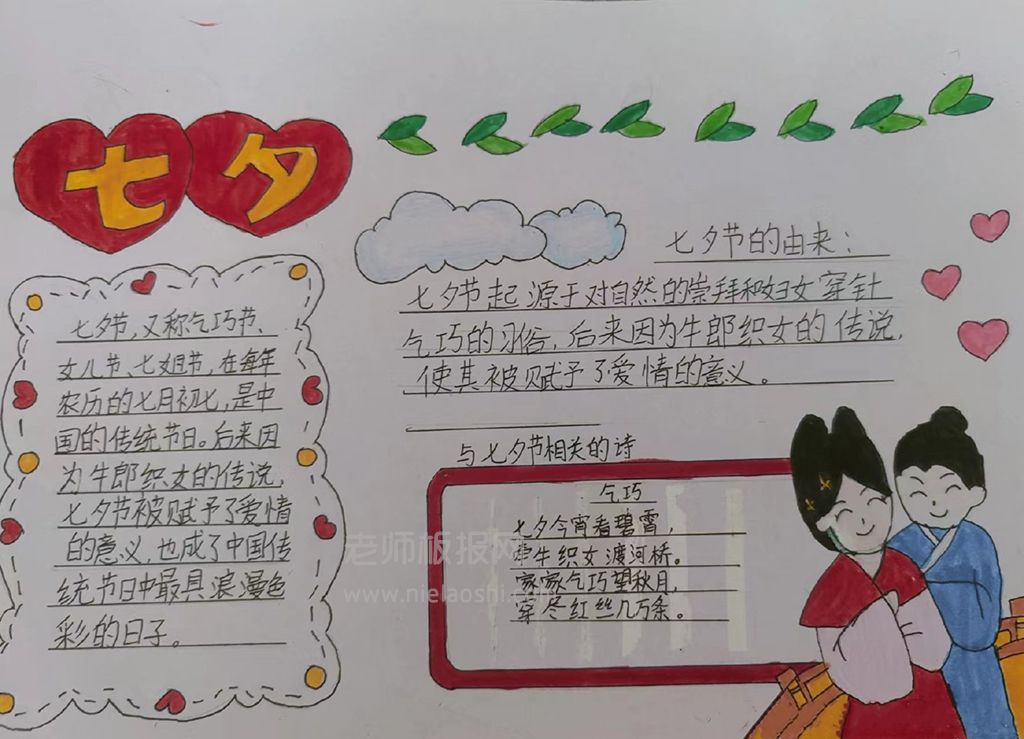 七夕
七夕节,又称乞巧节、
女儿节、七姐节,在每年
农历的七月初七,是中
国的传统节日。后来因
为牛郎织女的传说,
七夕节被赋予了爱情
的意义,也成了中国传
统节日中最具浪漫色
彩的日子。
七夕节的由来:
七夕节起源于对自然的崇拜和妇女穿针
乞巧的习俗,后来因为牛郎织女的传说,
使其被赋予了爱情的意义。
与七夕节相关的诗
乞巧
七夕今宵看碧霄,
牵牛织女渡河桥。
家家乞巧望秋月,
穿尽红丝几万条。
老师板报网
www.nielaoshi.com